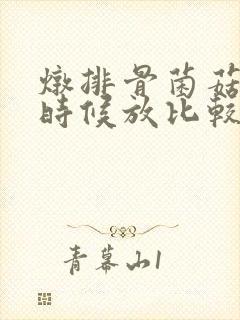 燉排骨菌菇
時候放比較
青幕山1